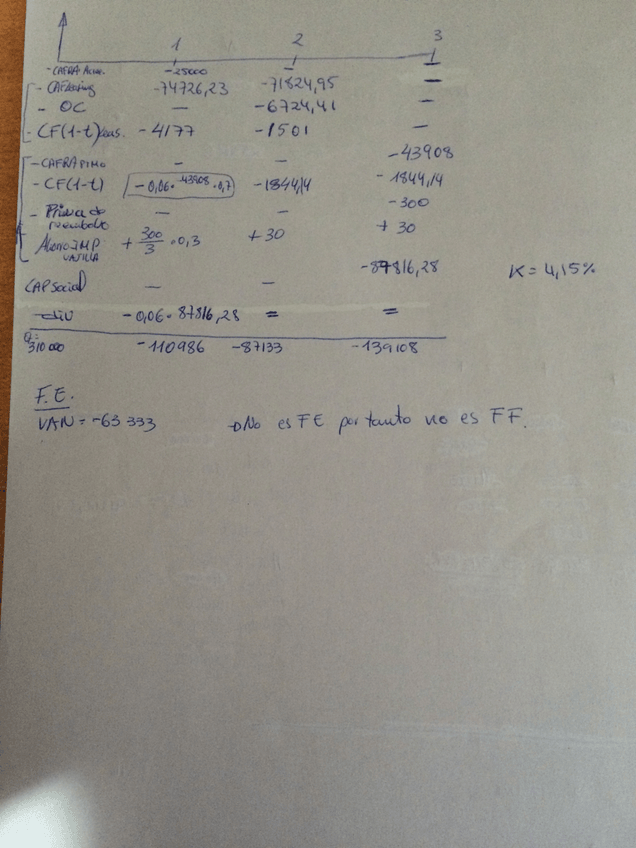 1 2 3
-25000 - -
- -74726,23 -71824,95 -
- OC - -6724,41 -
- CF(1-t) -4177 -1501 -
- - - -43908
- CF(1-t) -0,06·43908·0,7 -1844,14 -1844,14
- Prima de reembolso - - -300
Ahorro IMP + 300/3 ·0,3 +30 +30
CAP Social - - -87816,28 K = 4,15%
-div -0,06·87816,28 = =
310000 -110986 -87133 -139108
F.E.
VAN = -63 333 → No es FE por tanto no es FF.